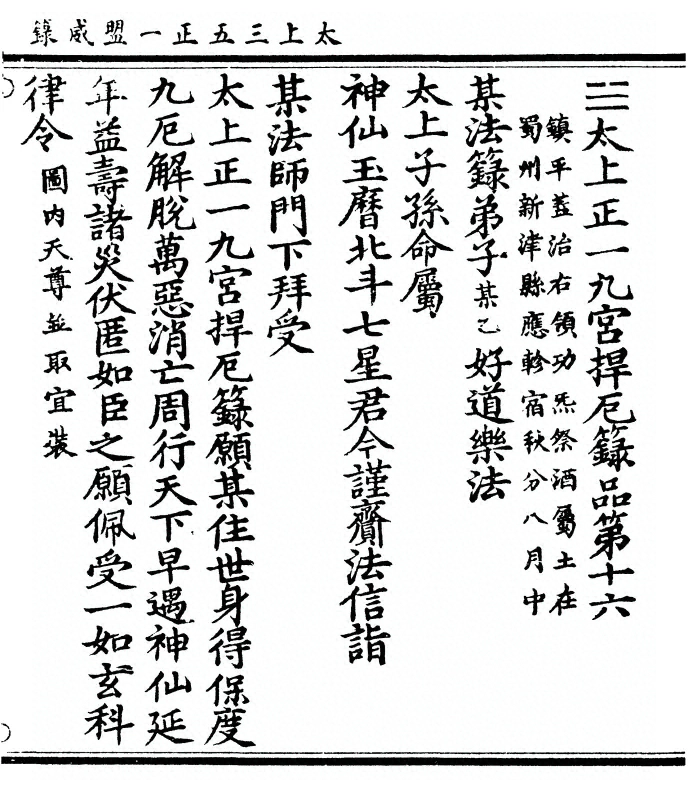 太上三五正一盟威籙
☷太上正一九宮捍厄籙品第十六
鎮平蓋治右領功炁祭酒屬土在
蜀州新津縣應軫宿秋分八月中
某法籙弟子某乙好道樂法
太上子孫命屬
神仙玉曆北斗七星君今謹齎法信詣
某法師門下拜受
太上正一九宮捍厄籙願某住世身得保度
九厄解脫萬惡消亡周行天下早遇神仙延
年益壽諸災伏匿如臣之願佩受一如玄科
律令 圖内天尊並取宜裝